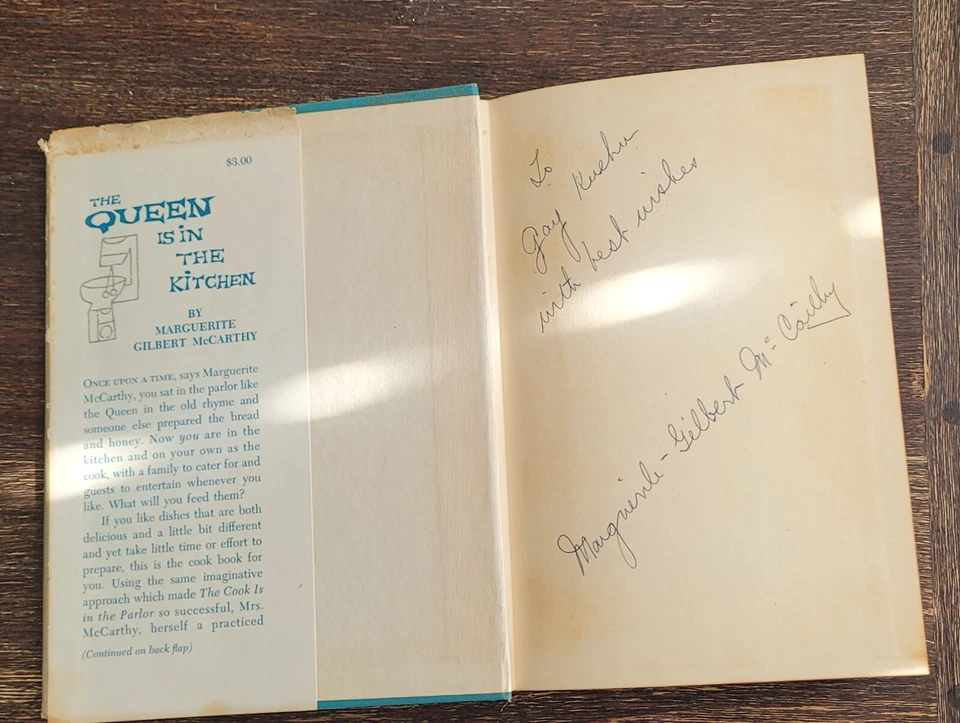 $3.00
THE
QUEEN
IS IN
THE
KITCHEN
BY
MARGUERITE
GILBERT McCARTHY
ONCE UPON A TIME, says Marguerite
McCarthy, you sat in the parlor like
the Queen in the old rhyme and
someone else prepared the bread
and honey. Now you are in the
kitchen and on your own as the
cook, with a family to cater for and
guests to entertain whenever you
like. What will you feed them?
If you like dishes that are both
delicious and a little bit different
and yet take little time or effort to
prepare, this is the cook book for
you. Using the same imaginative
approach which made The Cook Is
in the Parlor so successful, Mrs.
McCarthy, herself a practiced
(Continued on back flap)
To
Gay
with best wishes
Marguerite - Gilbert McCarthy